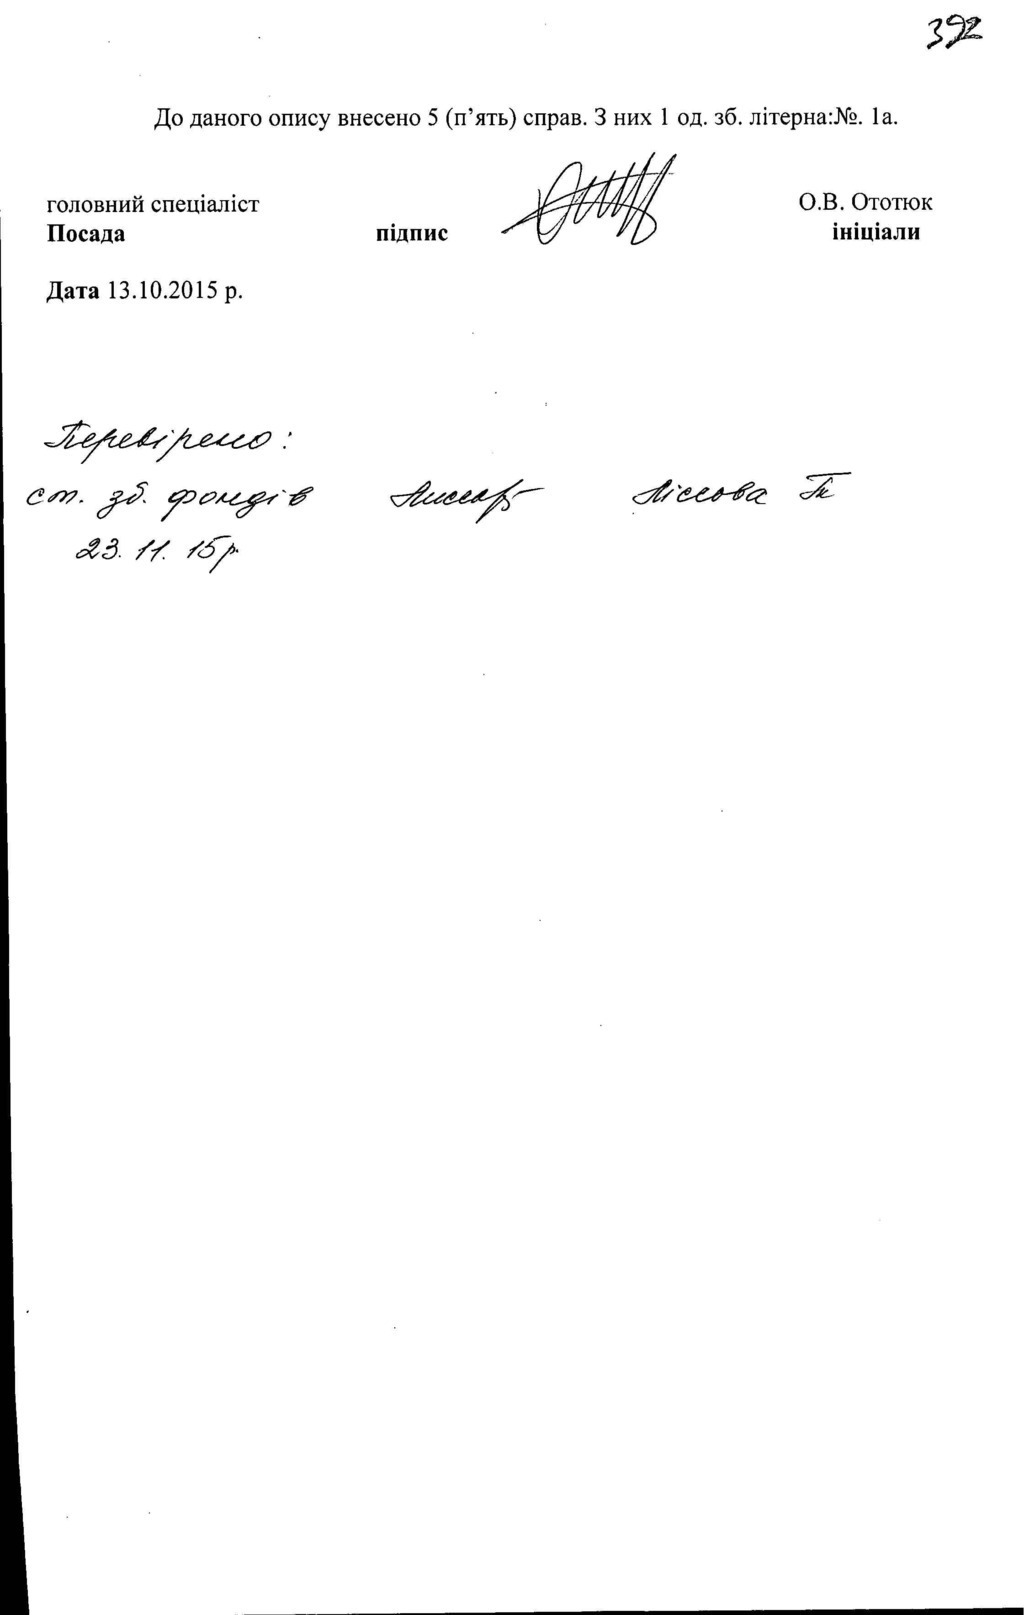 392
До даного опису внесено 5 (п’ять) справ. З них 1 од. зб. літерна:№. 1а.
головний спеціаліст О.В. Ототюк
Посада підпис ініціали
Дата 13.10.2015 р.
Перевірено:
ст. зб. фондів Ліссова
23. 11. 15р.